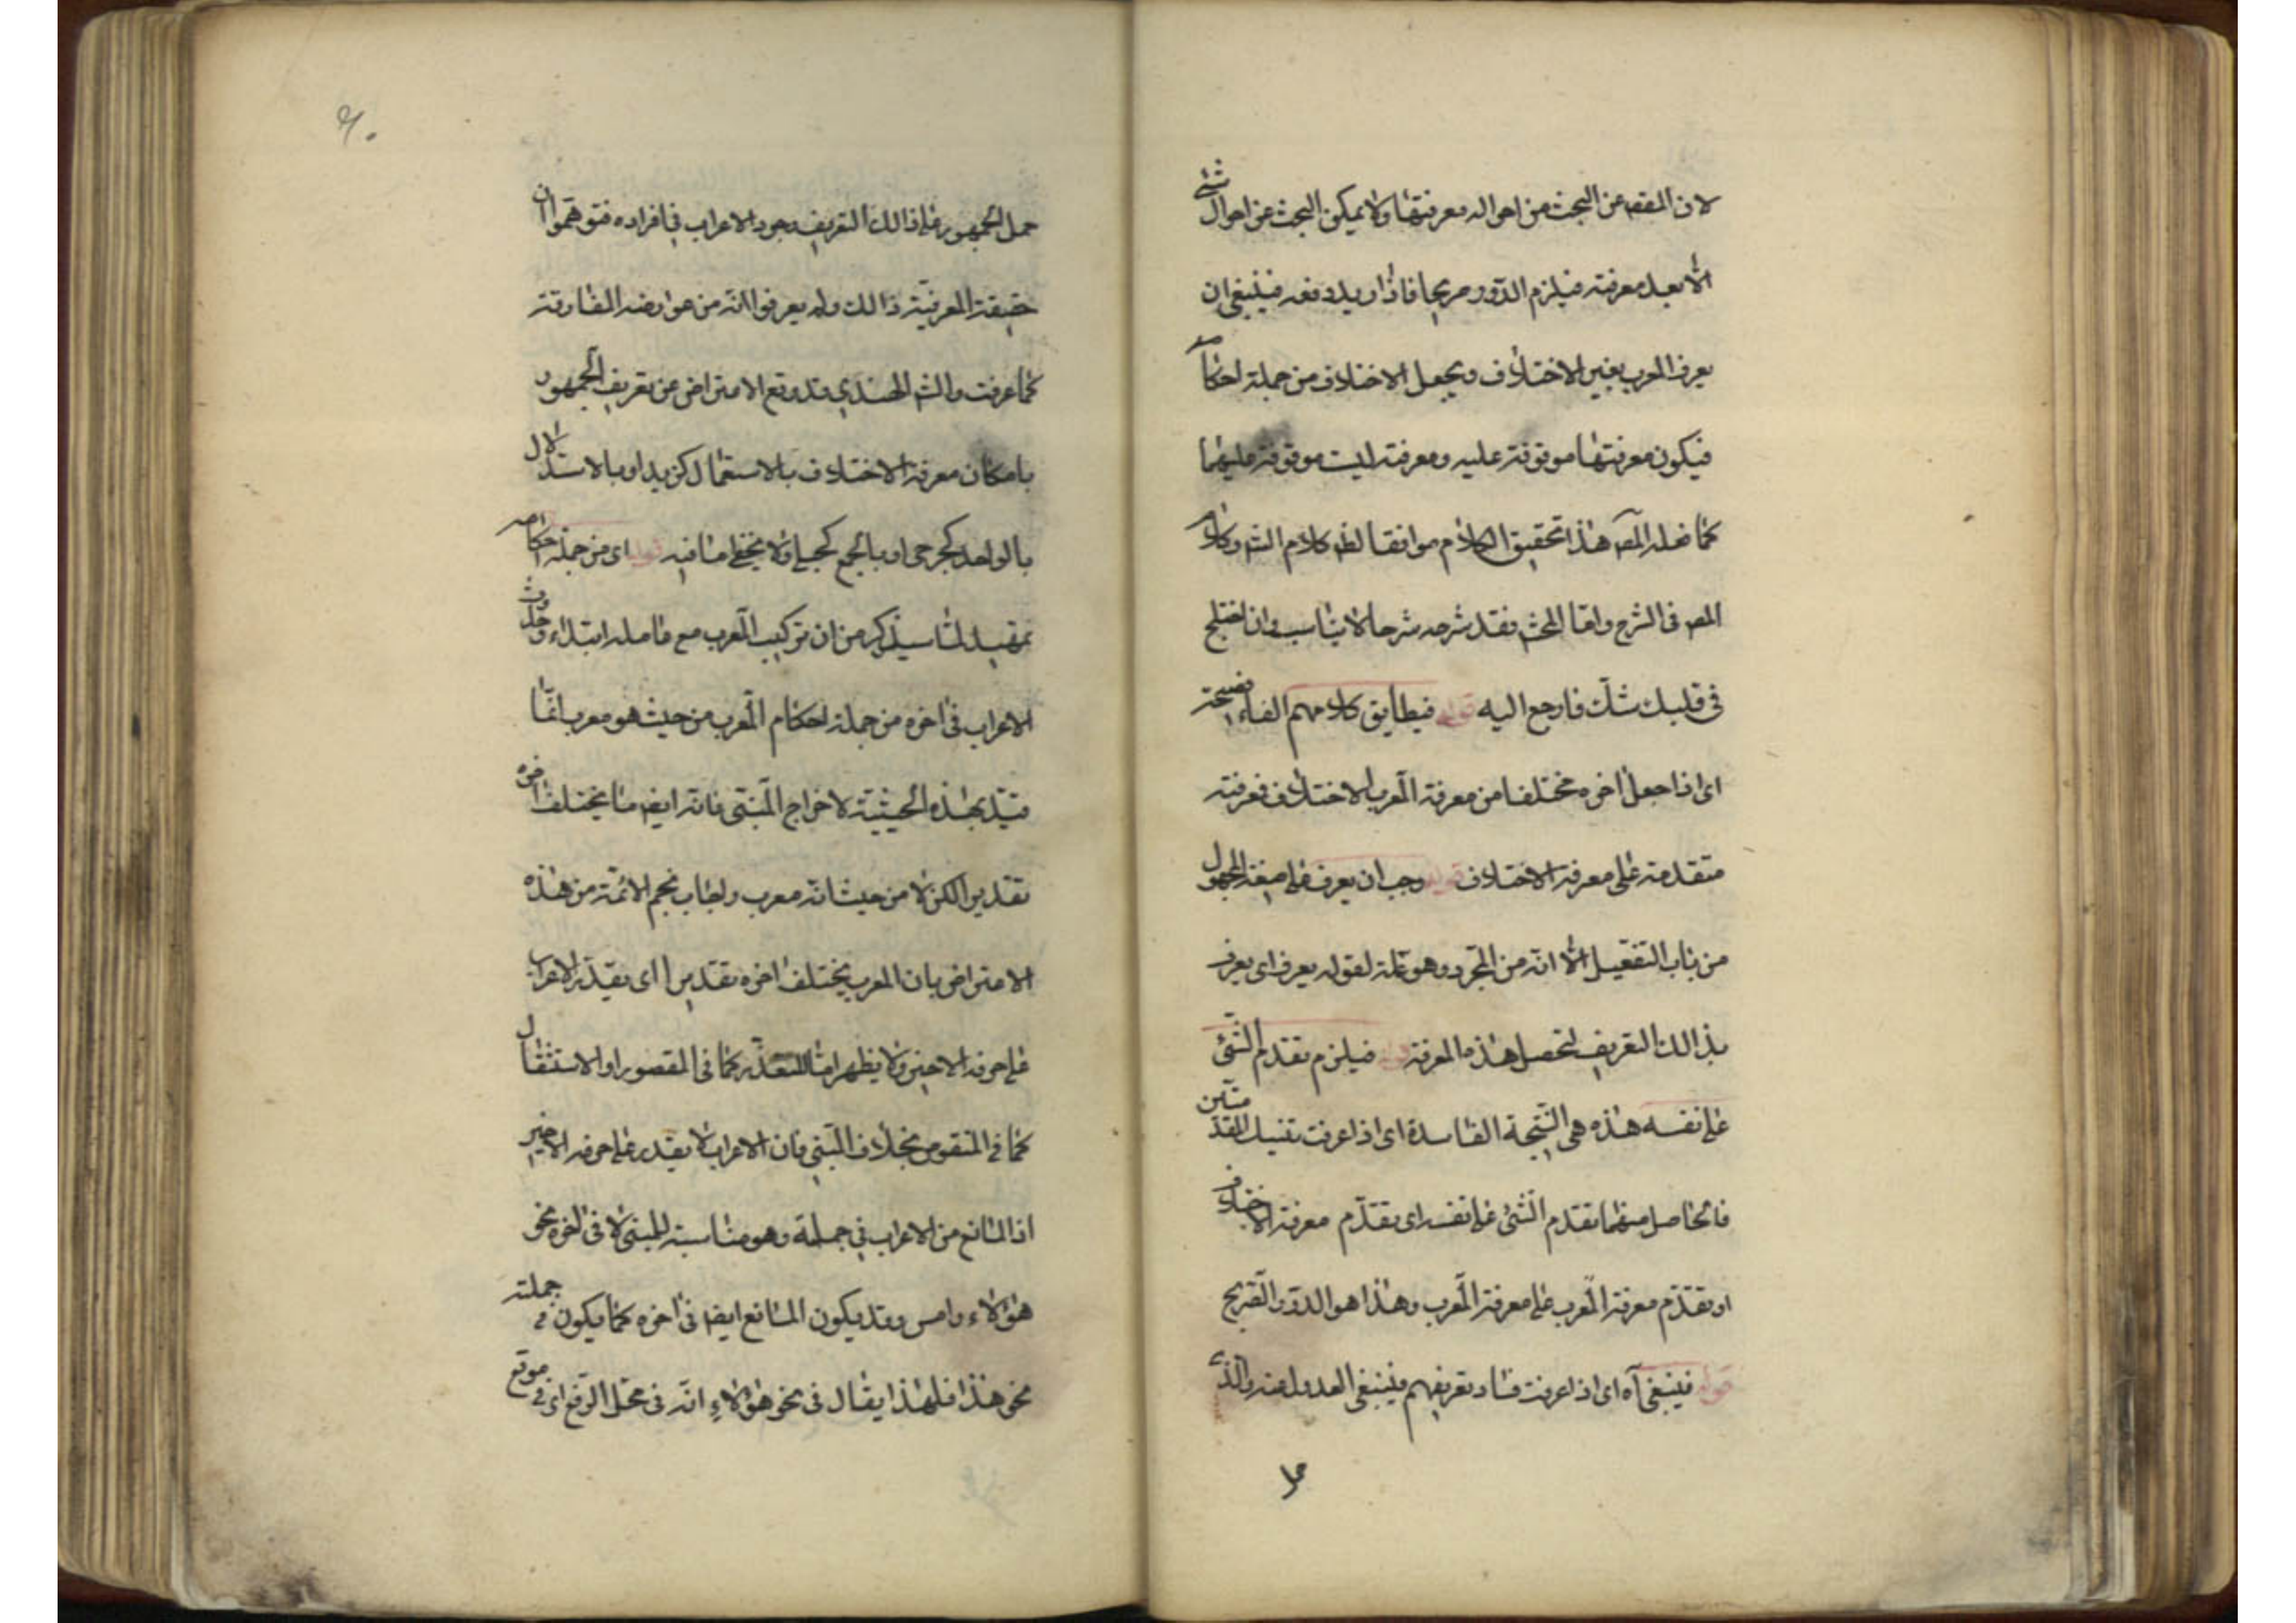 لان المقصـ عن البحث من احواله معرفتها ولا يمكن البحث عن احوال شئ
الا بعد معرفته فيلزم الدور صريحا فاذا اريد دفعه فينبغي ان
يعرف المعرب بغير الاختلاف ويجعل الاختلاف من جملة احكامه
فيكون معرفتها موقوفة عليه ومعرفته ليست موقوفة عليها
كما فعله المصـ هذا تحقيق الكلام موافقا لظـ كلام الشـ وكلام
المصـ في الشرح واما المحشـ فقد شرحه شرحا لا يناسب وان اختلج
في قلبك شك فارجع اليه قوله فيطابق كلامهم الفاء فصيحة
اى اذا جعل اخره مختلفا من معرفة المعرب الاختلاف فمعرفته
متقدمة على معرفة الاختلاف قوله وجب ان يعرف على صيغة المجهول
من باب التفعيل الا انه من المجرد وهو علة لقوله يعرف اى يعرف
بذالك التعريف لتحصل هذه المعرفة قوله فيلزم تقدم الشئ
على نفسه هذه هى النتيجة الفاسدة اى اذا عرفت تفصيل المقدمتين
فالحاصل منهما تقدم الشئ على نفسه اى تقدم معرفة الاختلاف
او تقدم معرفة المعرب على معرفة المعرب وهذا هو الدور الصريح
قوله فينبغى آه اى اذا عرفت فساد تعريفهم فينبغى العدول عنه والذى
حمل
حمل الجمهور على ذالك التعريف وجود الاعراب في افراده فتوهموا ان
حقيقة المعربية ذالك ولم يعرفوا انه من عوارضه المفارقة
كما عرفت والشـ الهندي وقد وقع الاعتراض عن تعريف الجمهور
بامكان معرفة الاختلاف بالاستعمال كزيد او بالاستدلال
بالواحد كجرحى او بالجمع كحبلى ولا يخفى ما فيه قوله اى من جملة احكامه
تمهيد لما سيذكر من ان تركيب المعرب مع عامله ابتداء وحدوث
الاعراب في اخره من جملة احكام المعرب من حيث هو معرب انما
قيد بهذه الحيثية لاخراج المبنى فانه ايضـ مما يختلف اخره
تقديرا لكن لا من حيث انه معرب واجاب نجم الائمة من هذه
الاعتراض بان المعرب يختلف اخره تقديرا اى يقدر الاعراب
على حرفه الاخير ولا يظهر اما للتعذر كما في المقصور او الاستثقال
كما فى المنقوص بخلاف المبنى فان الاعراب لا يقدر على حرفه الاخير
اذ المانع من الاعراب في جملته وهو مناسبة المبنى لا في اخره نحو
هؤلاء وامس وقد يكون المانع ايضا في اخره كما يكون فى جملته
نحو هذا فلهذا يقال في نحو هؤلاء انه في محل الرفع اى فى موقع